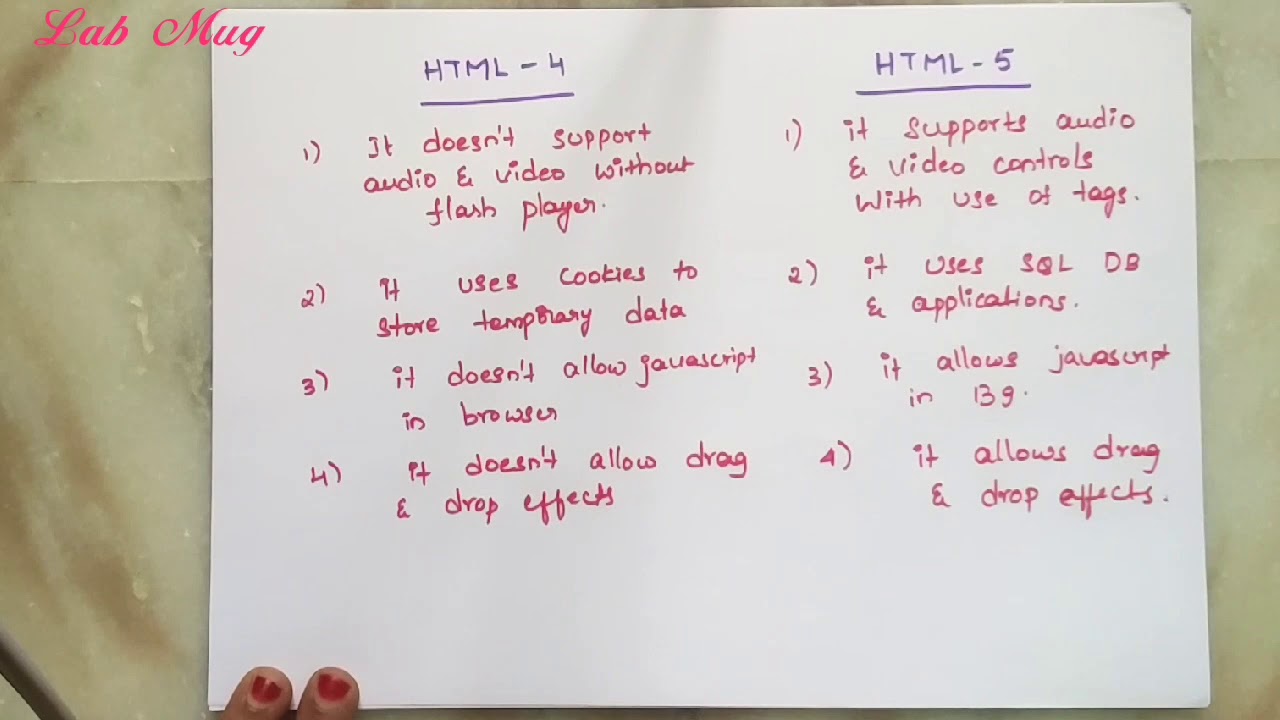 Lab Mug
HTML - 4
1) It doesn't support
audio & video without
flash player.
2) it uses cookies to
store temporary data
3) it doesn't allow javascript
in browser
4) it doesn't allow drag
& drop effects
HTML - 5
1) it supports audio
& video controls
with use of tags.
2) it uses SQL DB
& applications.
3) it allows javascript
in Bg.
4) it allows drag
& drop effects.